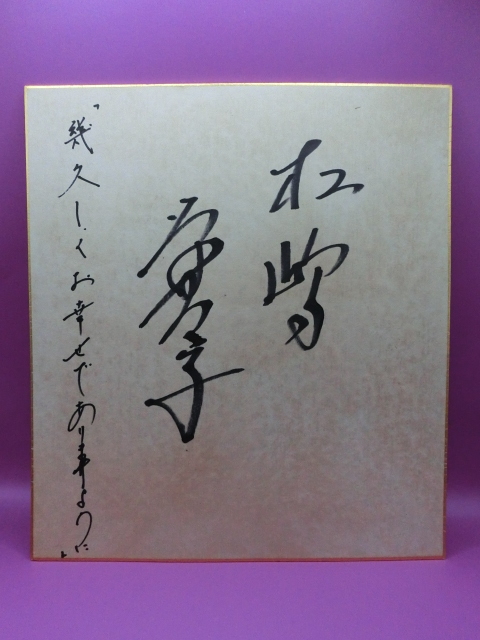 松嶋
子
「幾久しくお幸せでありますように」